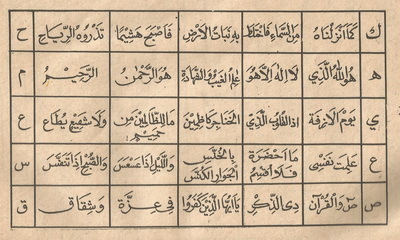 ك كما انزلناه من السماء فاختلط به نبات الارض فاصبح هشيما تذروه الرياح ح
ه هو الله الذي لا اله الا هو علم الغيب والشهادة هو الرحمن الرحيم م
ي يوم الازفة اذ القلوب الذي الحناجر كاظمين ما للظالمين من حميم ولا شفيع يطاع ع
ع علمت نفس ما احضرة فلا اقسم بالخنس الجوار الكنس والليل اذا عسعس والصبح اذا تنفس س
ص ص والقرآن ذي الذكر يا ايها الذين كفروا في عزة وشقاق ق